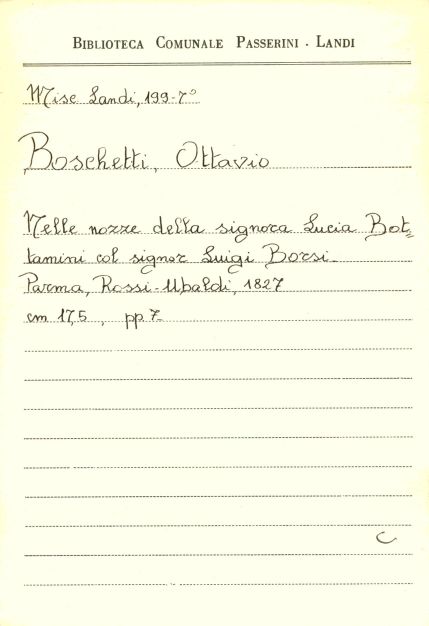 BIBLIOTECA COMUNALE PASSERINI . LANDI
Misc Landi, 199-7°
Boschetti, Ottavio
Nelle nozze della signora Lucia Bot=
tamini col signor Luigi Borsi.
Parma, Rossi-Ubaldi, 1827
cm 17,5 , pp 7
C